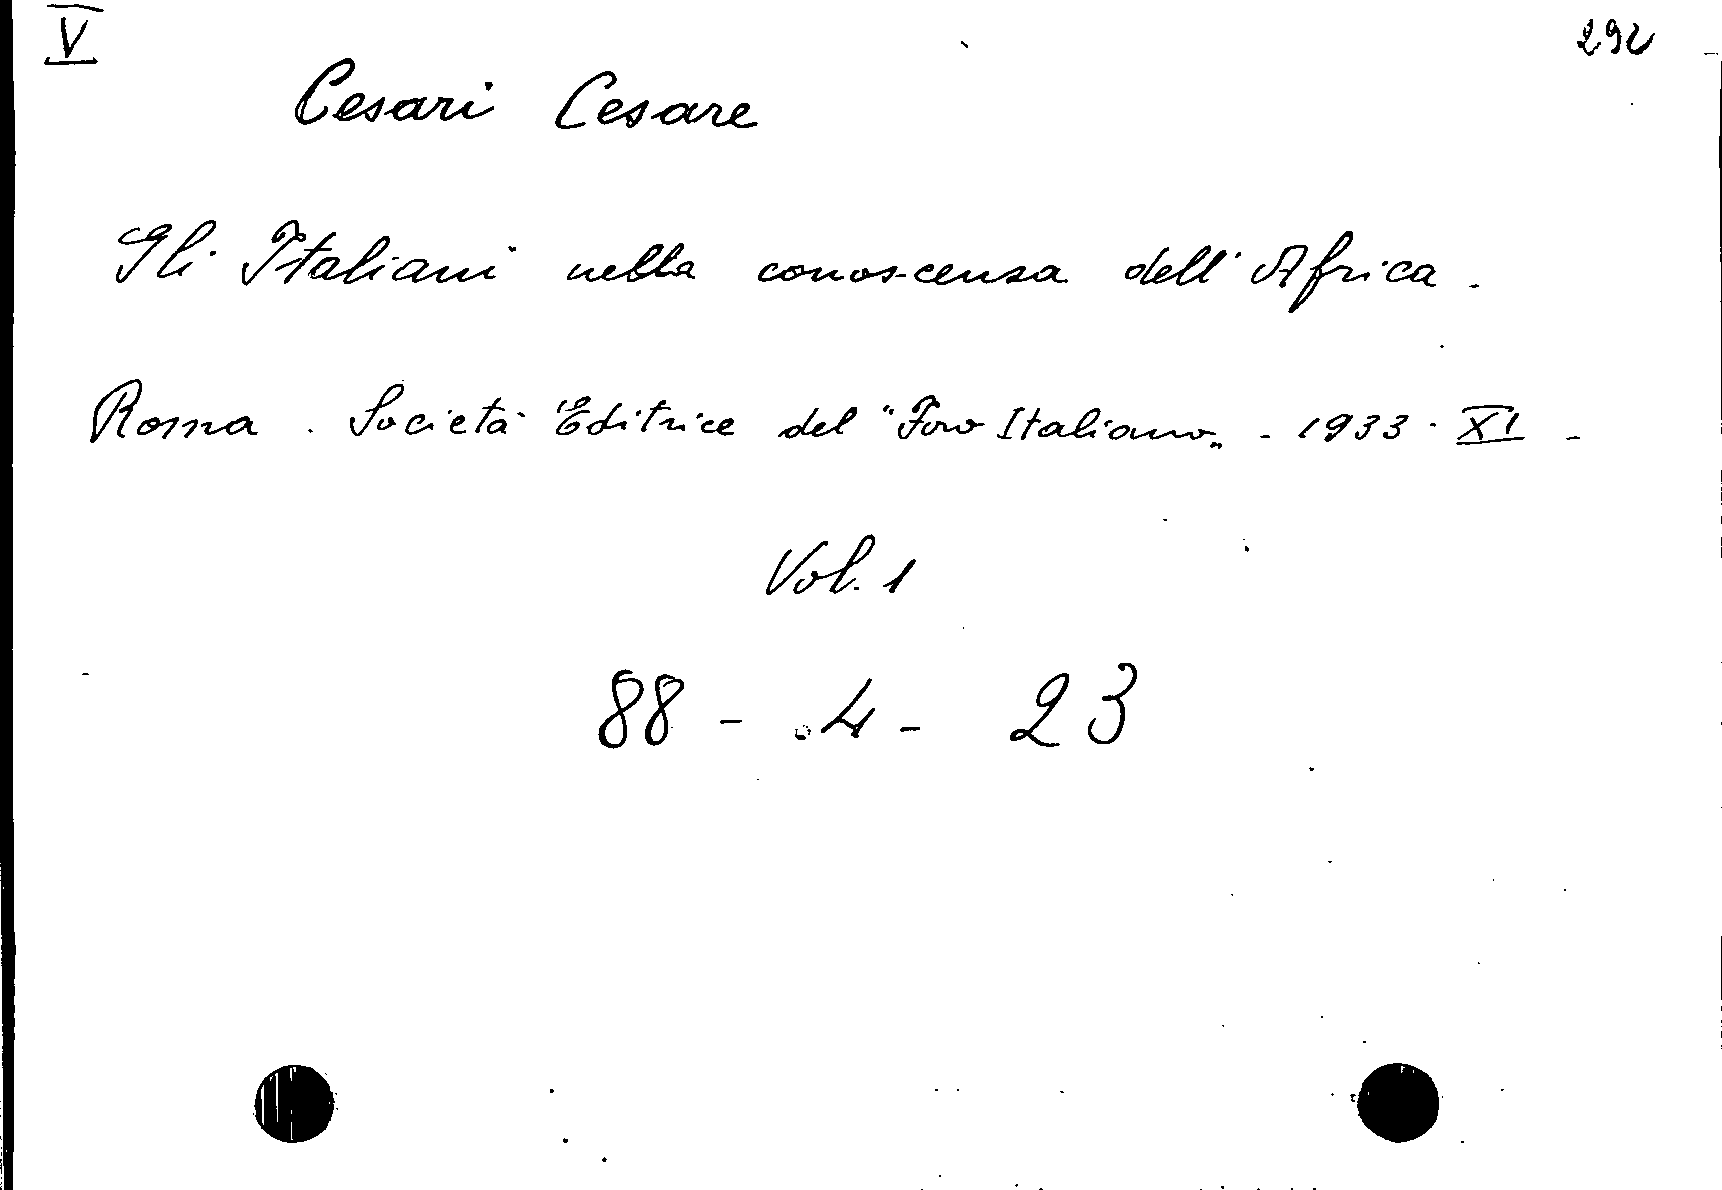 V 292
Cesari Cesare
Gli Italiani nella conoscenza dell'Africa.
Roma. Società Editrice del "Foro Italiano„ - 1933 - XI -
Vol. 1
88 - 4 - 23